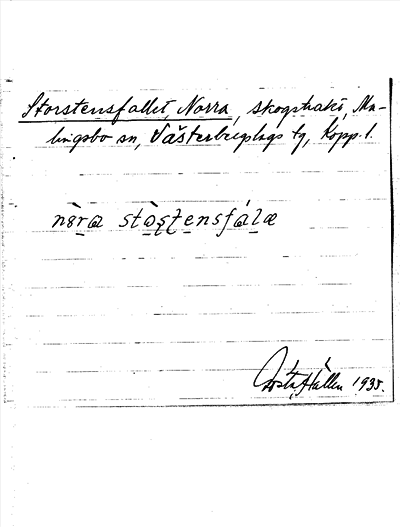 Storstensfallet, Norra, skogstrakt, Ma-
lingsbo sn, Västerbergslags tg, Kopp. l.
nòra stòstensfála
Gösta Hallén 1935.